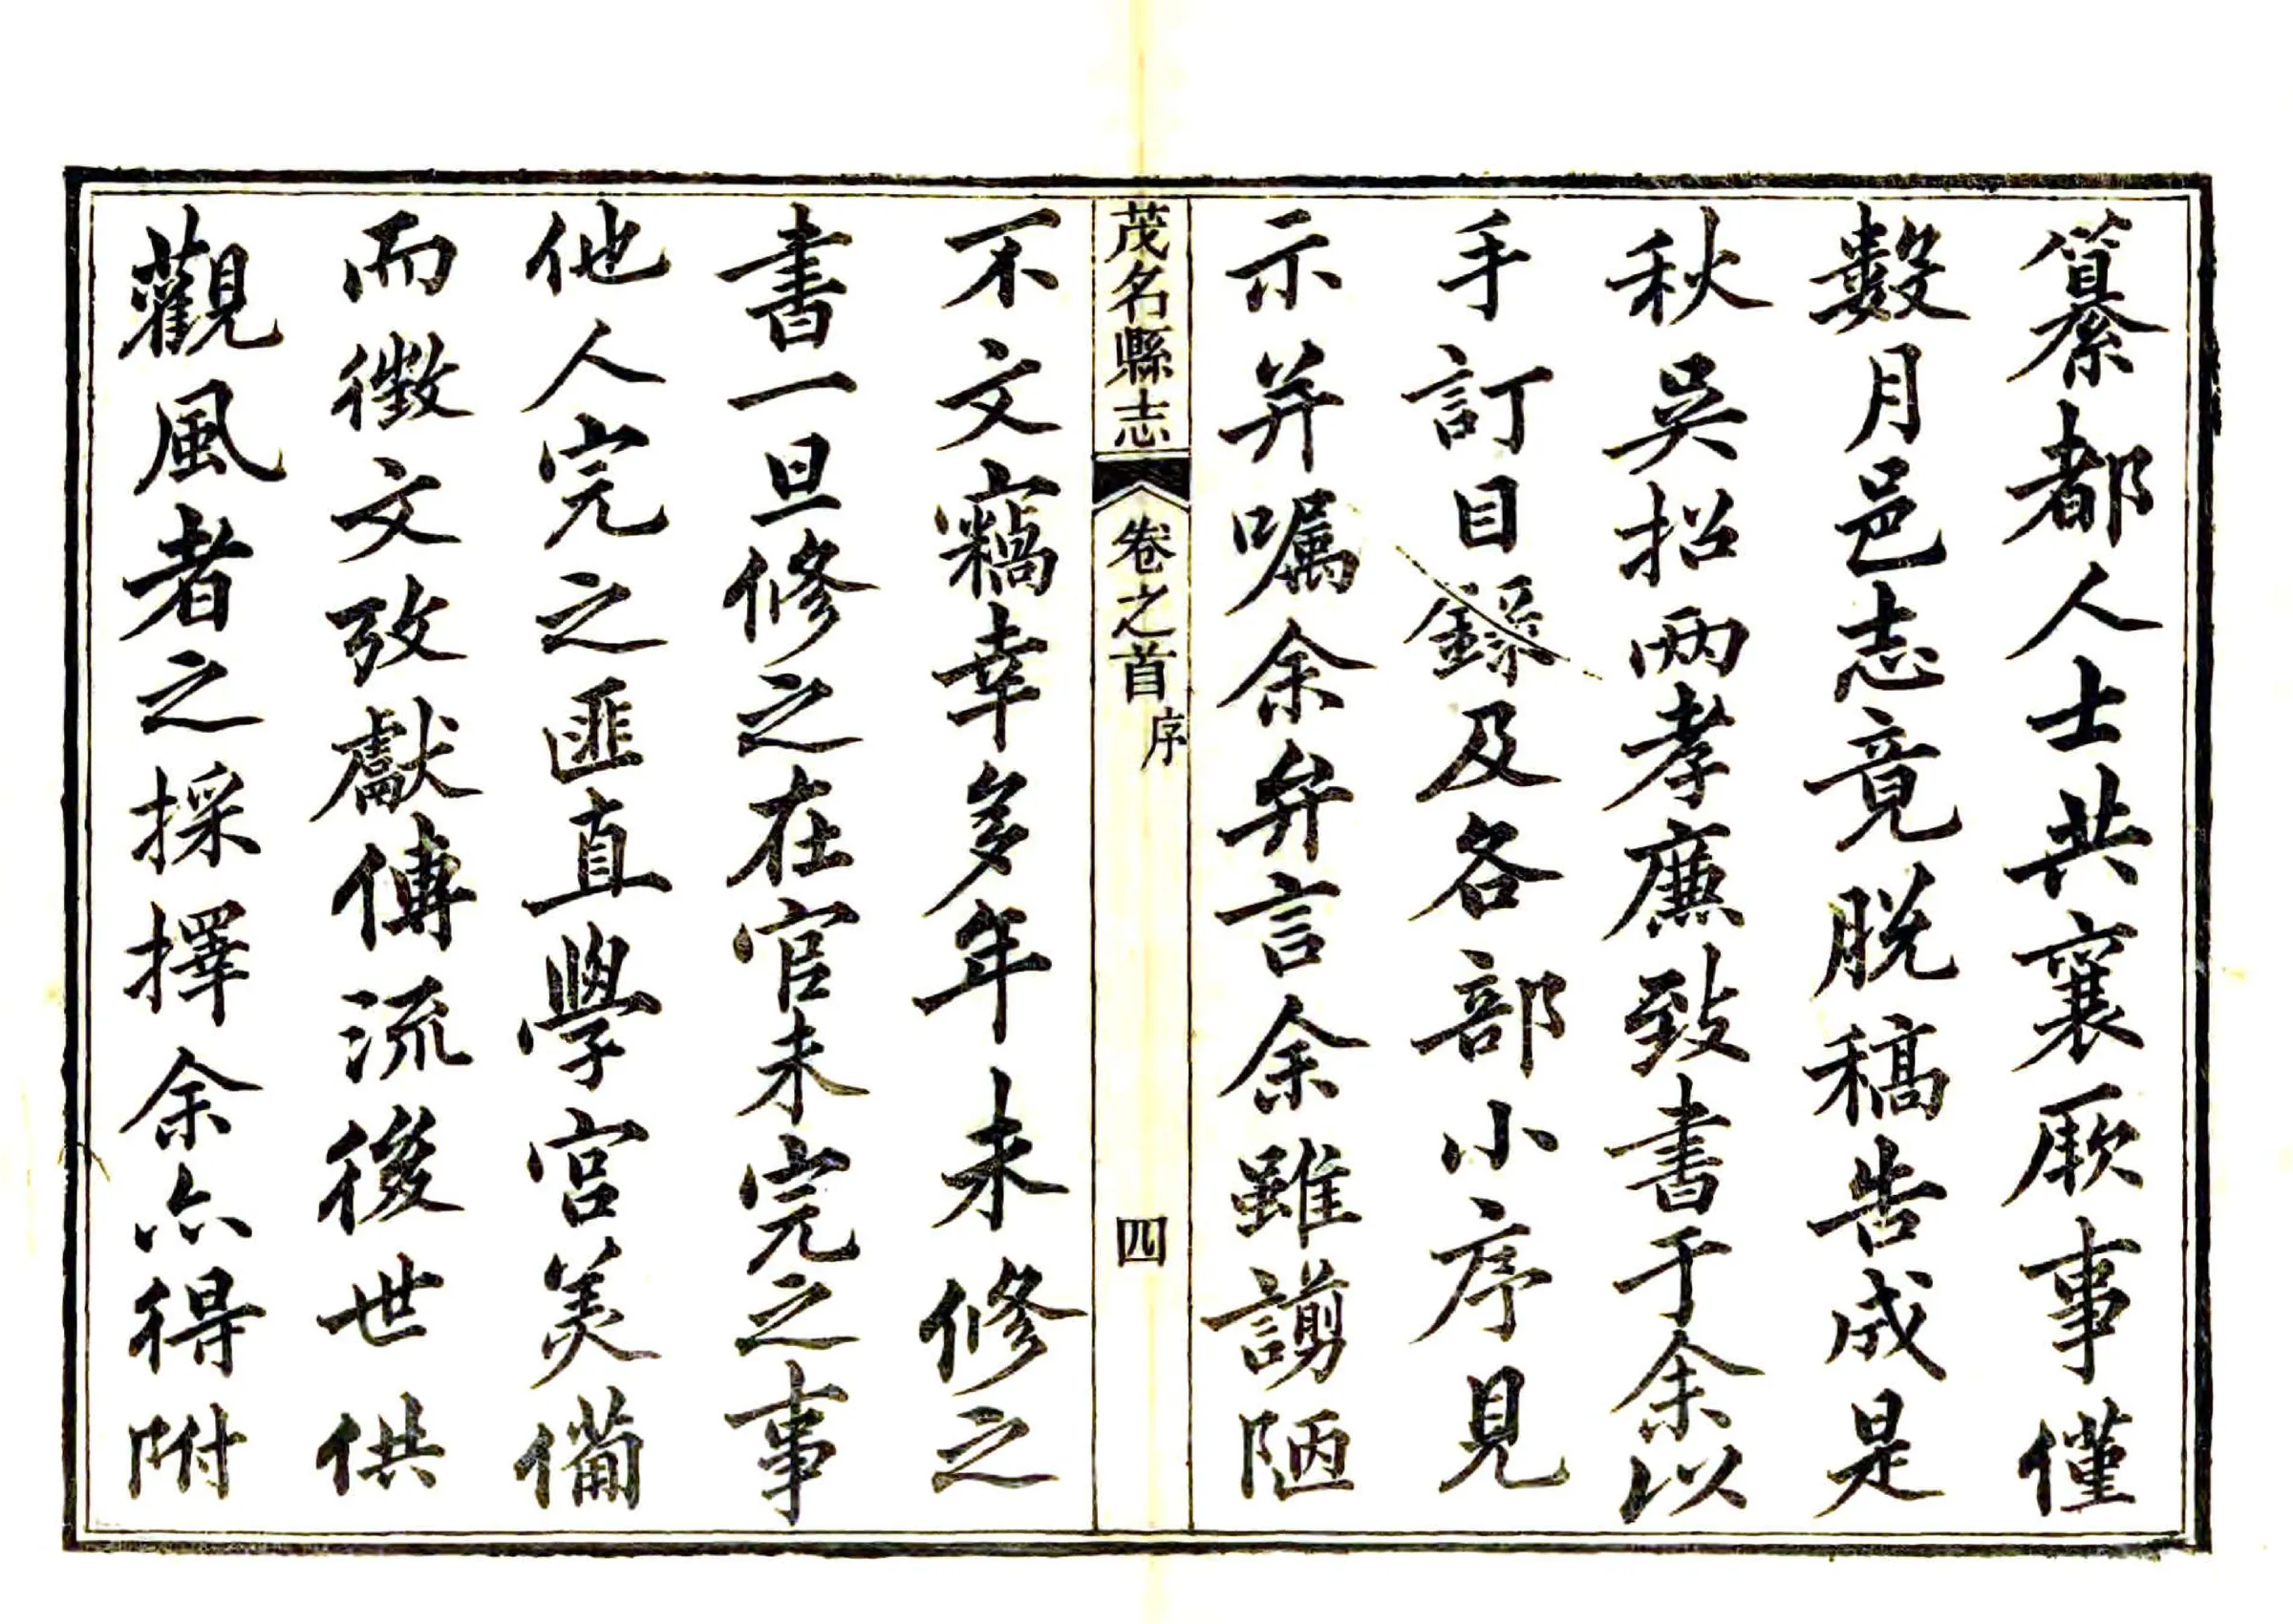 纂都人士共襄厥事僅
數月邑志竟脱稿告成是
秋吳招兩孝廉致書于余以
手訂目錄及各部小序見
示并嘱余弁言余雖謭陋
茂名縣志 卷之首 序 四
不文竊幸多年未修之
書一旦修之在官未完之事
他人完之匪直學宫美備
而徵文攷獻傳流後世供
觀風者之採擇余亦得附